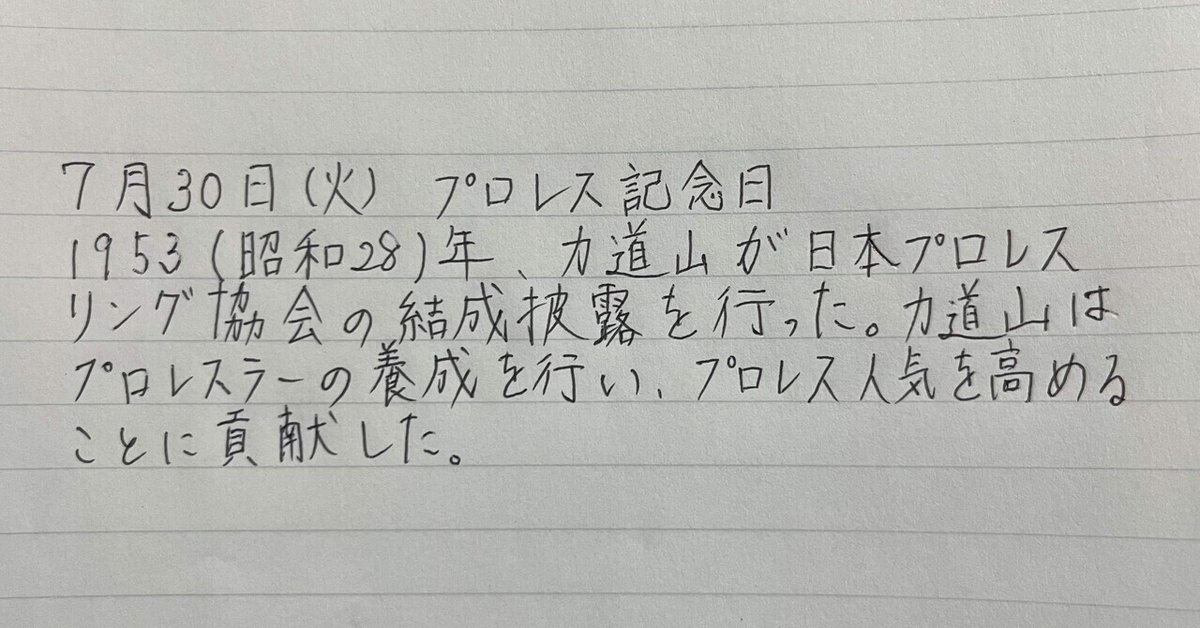 7月30日(火) プロレス記念日
1953(昭和28)年、力道山が日本プロレス
リング協会の結成披露を行った。力道山は
プロレスラーの養成を行い、プロレス人気を高める
ことに貢献した。